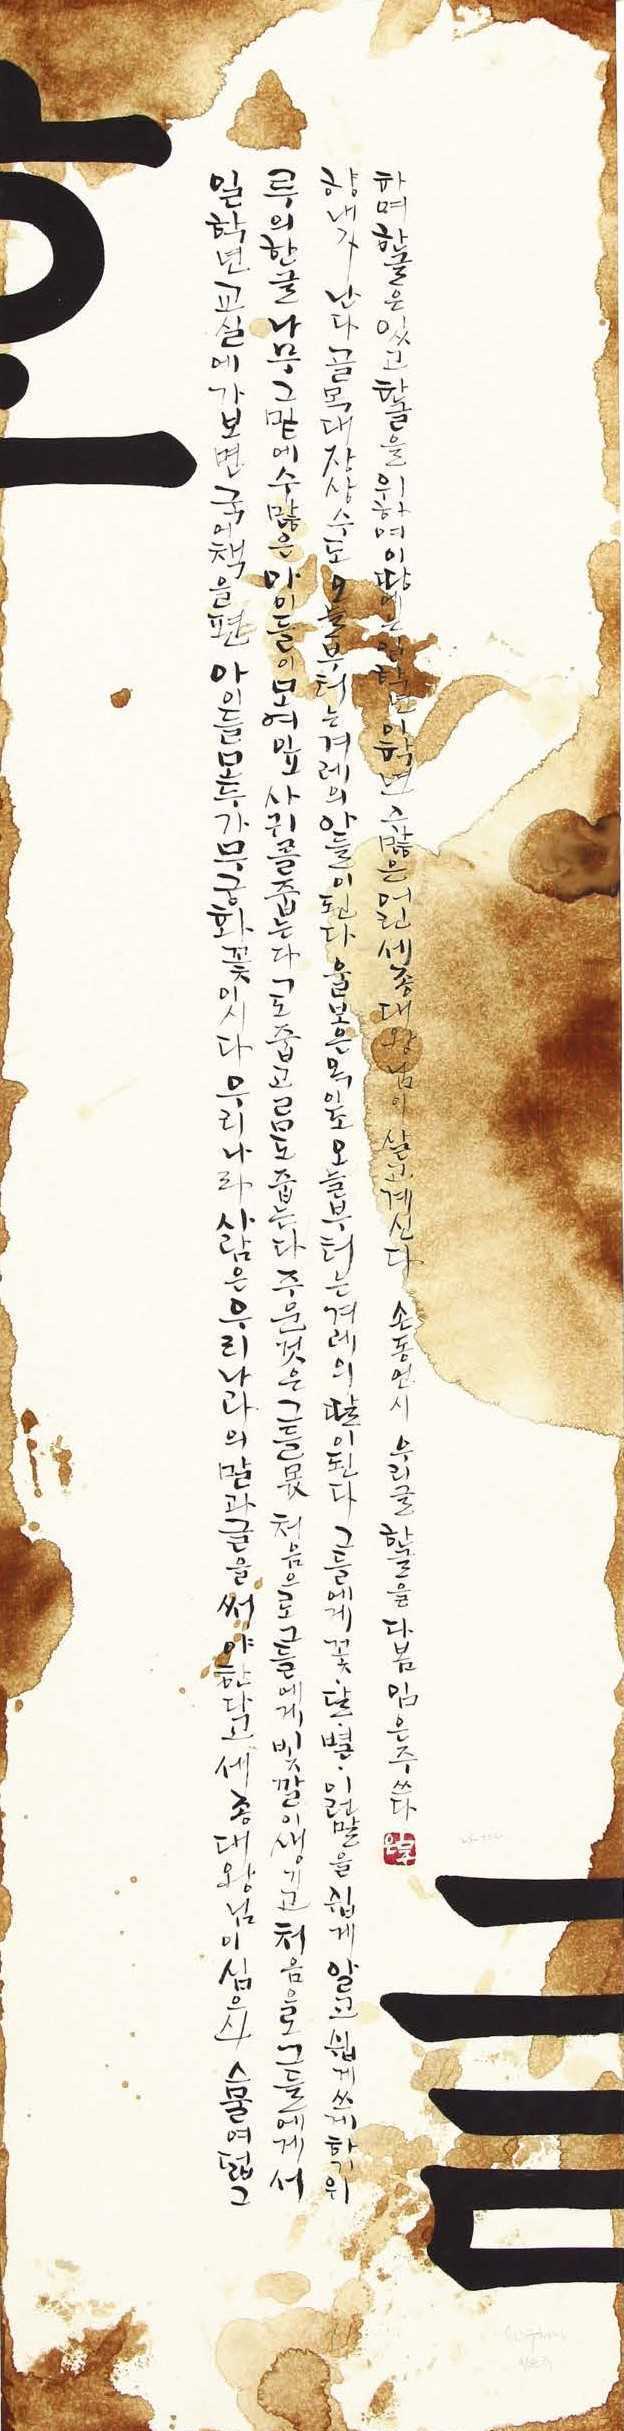 일학년 교실에 가보면 국어책을 편 아이들 모두가 무궁화 꽃이시다 우리나라 사람은 우리나라의 말과 글을 써야 한다고 세종대왕님이 심으신 스물여덟 그
루의 한글 나무 그 밑에 수많은 아이들이 모여 잎사귀를 줍는다 줍고 줍는다 주운 것은 그들 몫 처음으로 그들에게 빛깔이 생기고 처음으로 그들에게서
향내가 난다 골목대장 상수도 오늘부터는 겨레의 아들이 된다 울보 은옥이도 오늘부터는 겨레의 딸이 된다 그들에게 꽃·달·별·이런 말을 쉽게 알고 쉽게 쓰게 하기 위
하며 한글은 있고 한글을 위하여 이 땅에는 일학년 이학년 수많은 어린 세종대왕님이 살고 계신다 손동연 시 우리글 한글을 다봄 임은주 쓰다